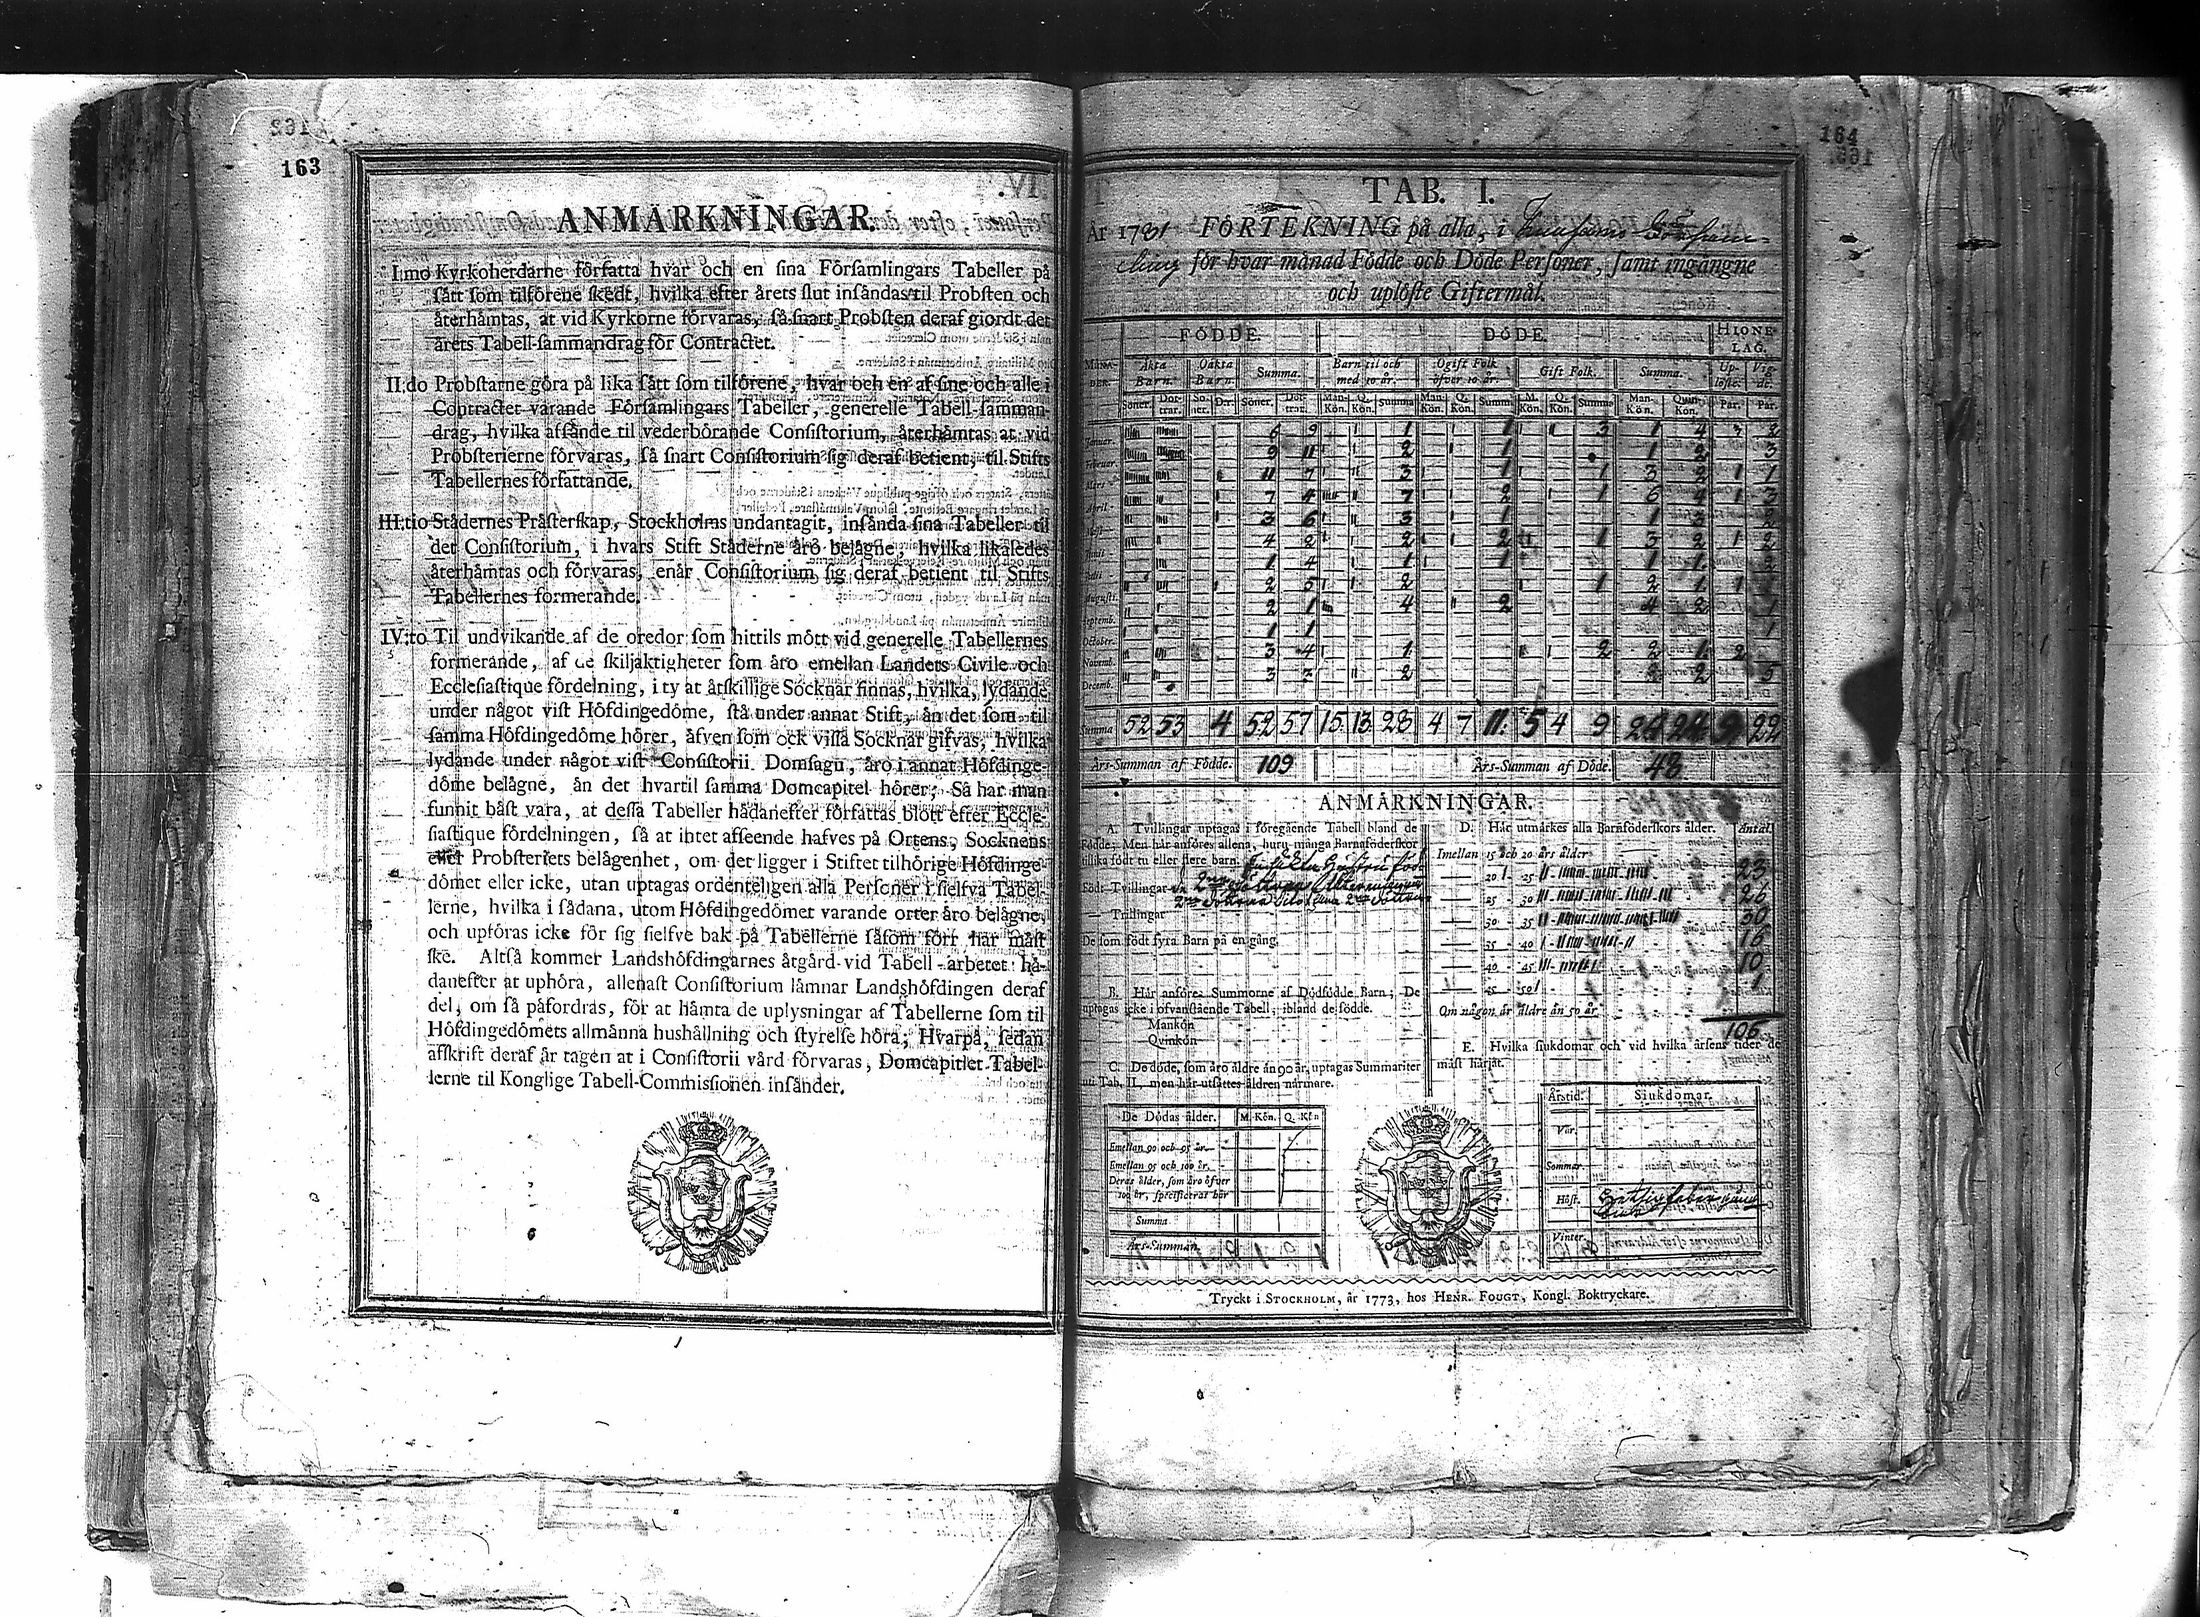 163
ANMÄRKNINGAR.
I:mo Kyrkoherdarne författa hvar och en sina Församlingars Tabeller på
sått som tilförene skedt, hvilka efter årets slut insåndas til Probsten och
återhåmtas, at vid Kyrkorne förvaras, så snart Probsten deraf giordt det
årets Tabell-sammandrag för Contractet.
II:do Probstarne góra på lika sått som tilförene, hvar och en af sine och alle i
Contractet varande Församlingars Tabeller, generelle Tabell-samman-
drag, hvilka afsånde til vederbörande Consistorium, återhåmtas at vid
Probsterierne förvaras, så snart Consistorium sig deraf betient, til Stifts
Tabellernes författande.
III:tio Stådernes Pråsterskap, Stockholms undantagit, insånda sina Tabeller til
det Consistorium, i hvars Stift Ståderne åro belågne, hvilka likaledes
återhåmtas och förvaras, enår Consistorium sig deraf betient til Stifts
Tabellernes formerande.
IV:to Til undvikande af de oredor som hittils mött vid generelle Tabellernes
formerande, af de skiljaktigheter som åro emellan Landets Civile och
Ecclesiastique fördelning, i ty at åtskillige Socknar finnas, hvilka, lydande
under något vist Höfdingedöme, stå under annat Stift, ån det som til
samma Höfdingedöme hörer, åfven som ock vissa Socknar gifvas, hvilka
lydande under något vist Consistorii Domsagu, åro i annat Höfdinge-
döme belågne, ån det hvartil samma Domcapitel hörer; Så har man
funnit båst vara, at dessa Tabeller hådanefter författas blott efter Eccle-
siastique fördelningen, så at intet afseende hafves på Ortens, Socknens
eller Probsteriets belågenhet, om det ligger i Stiftet tilhörige Höfdinge-
dömet eller icke, utan uptagas ordenteligen alla Personer i sielfva Tabel-
lerne, hvilka i sådana, utom Höfdingedömet varande orter åro belågne,
och upföras icke för sig sielfve bak på Tabellerne såsom förr har måst
ske. Altså kommer Landshöfdingarnes åtgård vid Tabell-arbetet hå-
danefter at uphöra, allenast Consistorium låmnar Landshöfdingen deraf
del, om så påfordras, för at håmta de uplysningar af Tabellerne som til
Höfdingedömets allmånna hushållning och styrelse höra; Hvarpå, sedan
afskrift deraf år tagen at i Consistorii vård förvaras, Domcapitlet Tabel-
lerne til Konglige Tabell-Commissionen insånder.
164
TAB. I.
År 1781 FÖRTEKNING på alla, i
för hvar månad Födde och Döde Personer, samt ingångne
och uplöste Giftermål.
FÖDDE. DÖDE. HIONE-
LAG.
MÅNA-
DER. Åkta
Barn. Oåkta
Barn. Summa. Barn til och
med 10 år. Ogift Folk
öfver 10 år. Gift Folk. Summa. Up-
löste. Vig-
de.
Söner. Döt-
trar. Sö-
ner. D:r. Söner. Döt-
trar. Man-
Kön. Q.
Kön. Summa Man-
Kön. Q.
Kön. Summ. M.
Kön. Q.
Kön. Summa Man-
Kön. Quin-
Kön. Par. Par.
Januar. 6 9 1 1 3 1 4 3 2
Februar. 9 11 2 1 1 2 3
Mars 11 7 3 1 1 3 2 1 1
April. 7 4 7 2 1 6 4 1 3
Maji 3 6 3 1 1 3 2
Junii 4 2 2 2 1 3 2 1 2
Julii 1 4 1 1 1 1 2
Augusti. 2 5 2 1 2 1 1 1
Septemb. 2 1 4 2 4 2 1
October. 1 1 1
Novemb. 3 4 1 2 2 1 2
Decemb. 3 3 2 2 2 5
Summa 52 53 4 52 57 15 13 28 4 7 11. 5 4 9 24 24 9 22
Års-Summan af Födde. 109 Års-Summan af Döde. 48
ANMÄRKNINGAR.
A. Tvillingar uptagas i föregående Tabell bland de
Födde; Men hår anföres allena, huru många Barnaföderskor
tillika födt tu eller flere barn.
Födt Tvillingar
— Trillingar
De som födt fyra Barn på en gång.
B. Hår anföres Summorne af Dödfödde Barn; De
uptagas icke i ofvanstående Tabell, ibland de födde.
Mankön
Qvinkön
C. De döde, som åro åldre ån 90 år, uptagas Summariter
uti Tab. II, men hår utsåttes åldren nårmare.
De Dödas ålder. M. Kön. Q. Kön
Emellan 90 och 95 år.
Emellan 95 och 100 år.
Deras ålder, som åro öfver
100 år, specificerat hår
Summa
Års-Summan
D. Hår utmårkes alla Barnföderskors ålder. Antal.
Imellan 15 och 20 års ålder
— 20 - 25 23
— 25 - 30 26
— 30 - 35 30
— 35 - 40 16
— 40 - 45 10
— 45 - 50 1
Om någon år åldre ån 50 år.
106
E. Hvilka siukdomar och vid hvilka årsens tider de
måst hårjat.
Årstid. Siukdomar.
Vår.
Sommar
Höst.
Vinter.
Tryckt i STOCKHOLM, år 1773, hos HENR. FOUGT, Kongl. Boktryckare.